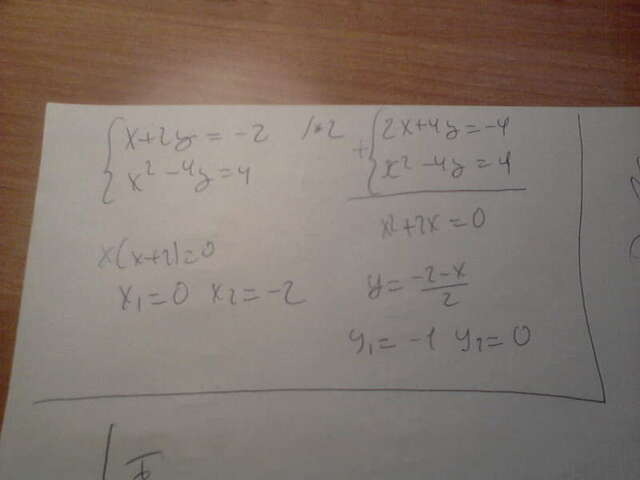 x+2y = -2 /*2
x² - 4y = 4
+ 2x+4y = -4
x² - 4y = 4
x²+2x = 0
x(x+2)=0
x₁=0 x₂=-2
y = (-2-x)/2
y₁= -1 y₂= 0